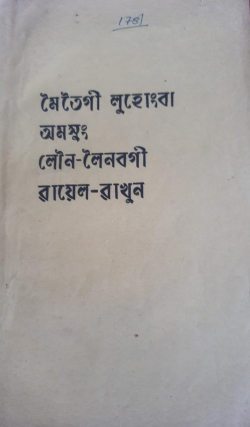 1781
মৈতৈগী লুহোংবা
অমসুং
লৌন-লৈনবগী
ৱায়েল-ৱাখুন